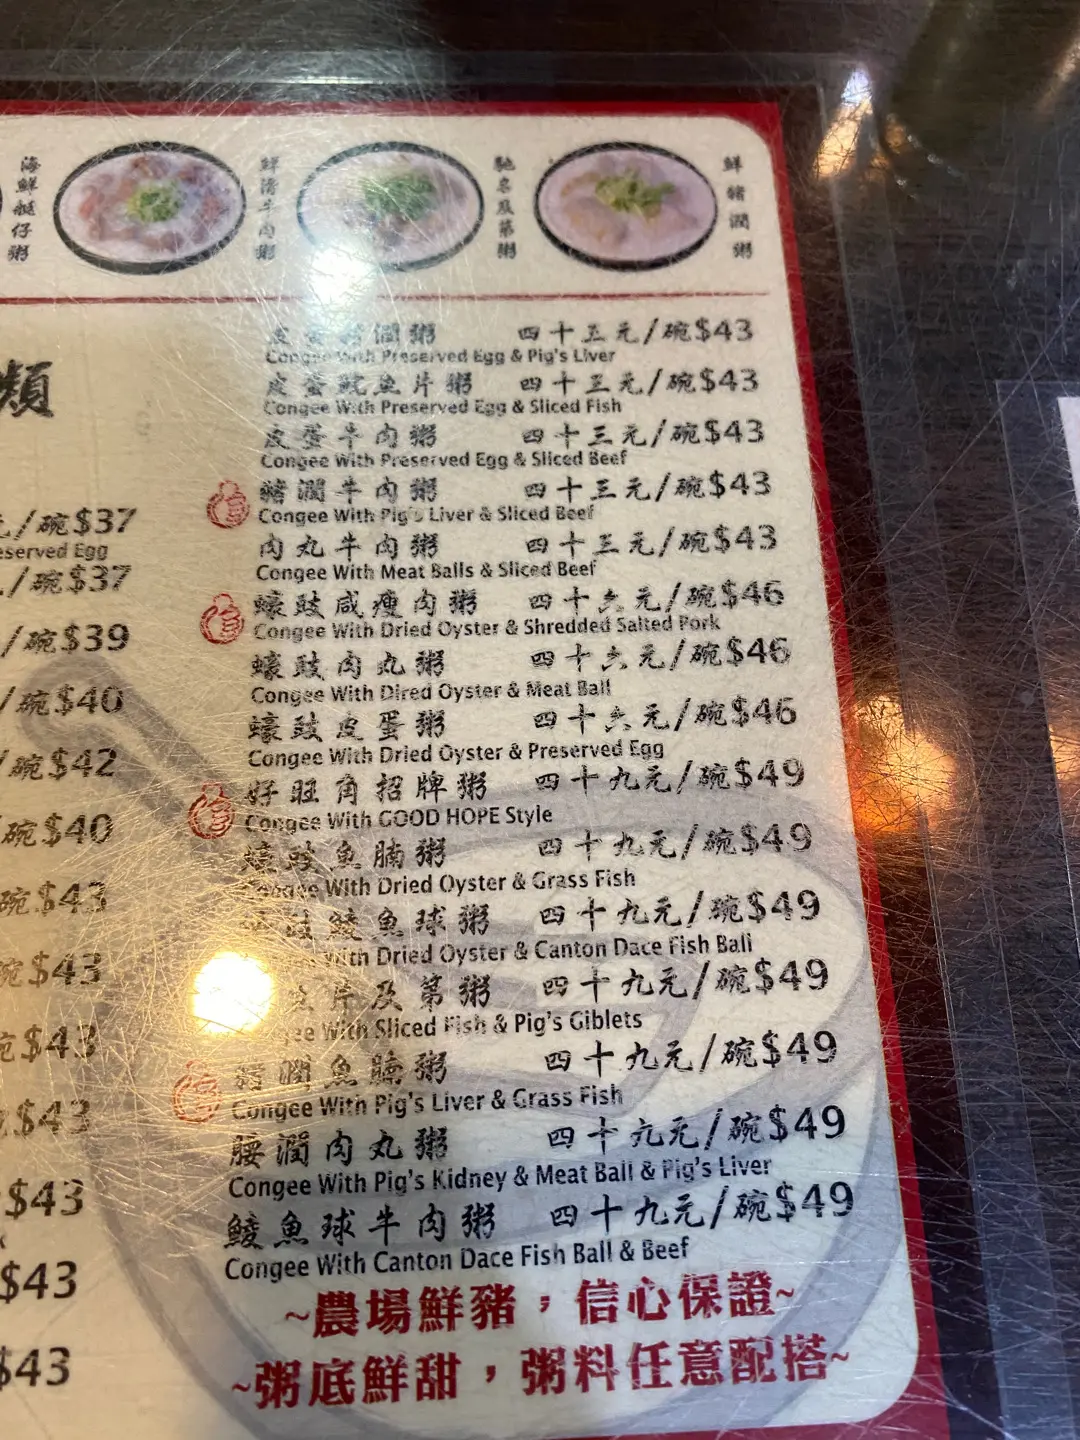 海鮮艇仔粥
鮮滑牛肉粥
馳名及第粥
鮮豬潤粥
類
皮蛋豬潤粥 四十三元/碗$43
Congee With Preserved Egg & Pig's Liver
皮蛋鯇魚片粥 四十三元/碗$43
Congee With Preserved Egg & Sliced Fish
皮蛋牛肉粥 四十三元/碗$43
Congee With Preserved Egg & Sliced Beef
豬潤牛肉粥 四十三元/碗$43
Congee With Pig's Liver & Sliced Beef
肉丸牛肉粥 四十三元/碗$43
Congee With Meat Balls & Sliced Beef
蠔豉咸瘦肉粥 四十六元/碗$46
Congee With Dried Oyster & Shredded Salted Pork
蠔豉肉丸粥 四十六元/碗$46
Congee With Dired Oyster & Meat Ball
蠔豉皮蛋粥 四十六元/碗$46
Congee With Dried Oyster & Preserved Egg
好旺角招牌粥 四十九元/碗$49
Congee With GOOD HOPE Style
蠔豉魚腩粥 四十九元/碗$49
Congee With Dried Oyster & Grass Fish
豉鯪魚球粥 四十九元/碗$49
With Dried Oyster & Canton Dace Fish Ball
片及第粥 四十九元/碗$49
With Sliced Fish & Pig's Giblets
豬潤魚腩粥 四十九元/碗$49
Congee With Pig's Liver & Grass Fish
腰潤肉丸粥 四十九元/碗$49
Congee With Pig's Kidney & Meat Ball & Pig's Liver
鯪魚球牛肉粥 四十九元/碗$49
Congee With Canton Dace Fish Ball & Beef
元/碗$37
eserved Egg
/碗$37
/碗$39
/碗$40
/碗$42
碗$40
碗$43
碗$43
$43
$43
$43
$43
$43
~農場鮮豬，信心保證~
~粥底鮮甜，粥料任意配搭~